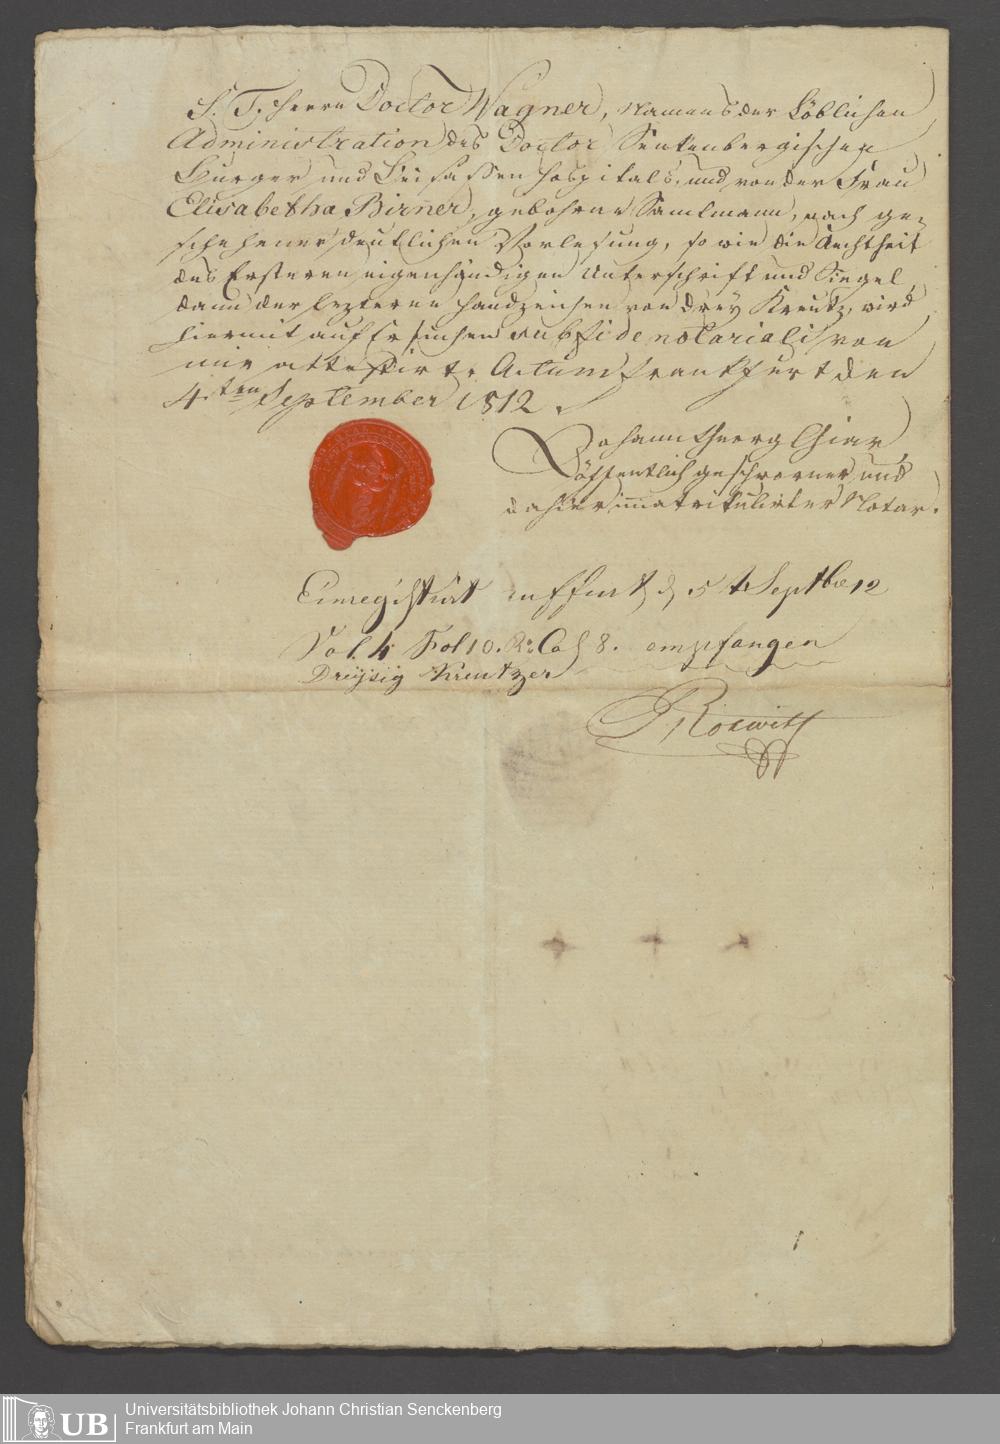 S. T. Herrn Doctor Wagner, Namens der Löblichen
Administration des Doctor Senkenbergischen
Burger und Beisassen Hospitals, und von der Frau
Elisabetha Birner, gebohrne Samlmann, nach ge-
schehener deutlichen Vorlesung, so wie die Aechtheit
des Ersteren eigenhändigen Unterschrift und Siegel,
dann der lezteren Handzeichen von drey Kreutz, wird
hiermit auf Ersuchen sub fide notariali von
mir attestirt. Actum Frankfurt den
4.ten September 1812.
Johann Georg
öffentlich geschworner und
dahier immatrikulirter Notar.
Einregistrirt zu Ffurt d 5t Septbr 12
Vol. 4 Fol 10. Ro. Cas 8. empfangen
Dreysig Kreutzer
UB
Universitätsbibliothek Johann Christian Senckenberg
Frankfurt am Main